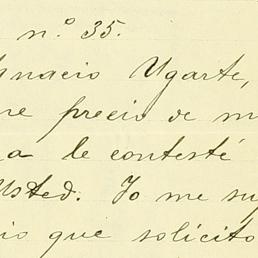 n.º 35.
Ignacio Ugarte,
re precio de m
a le contesté
Usted. Yo me su
io que solicito